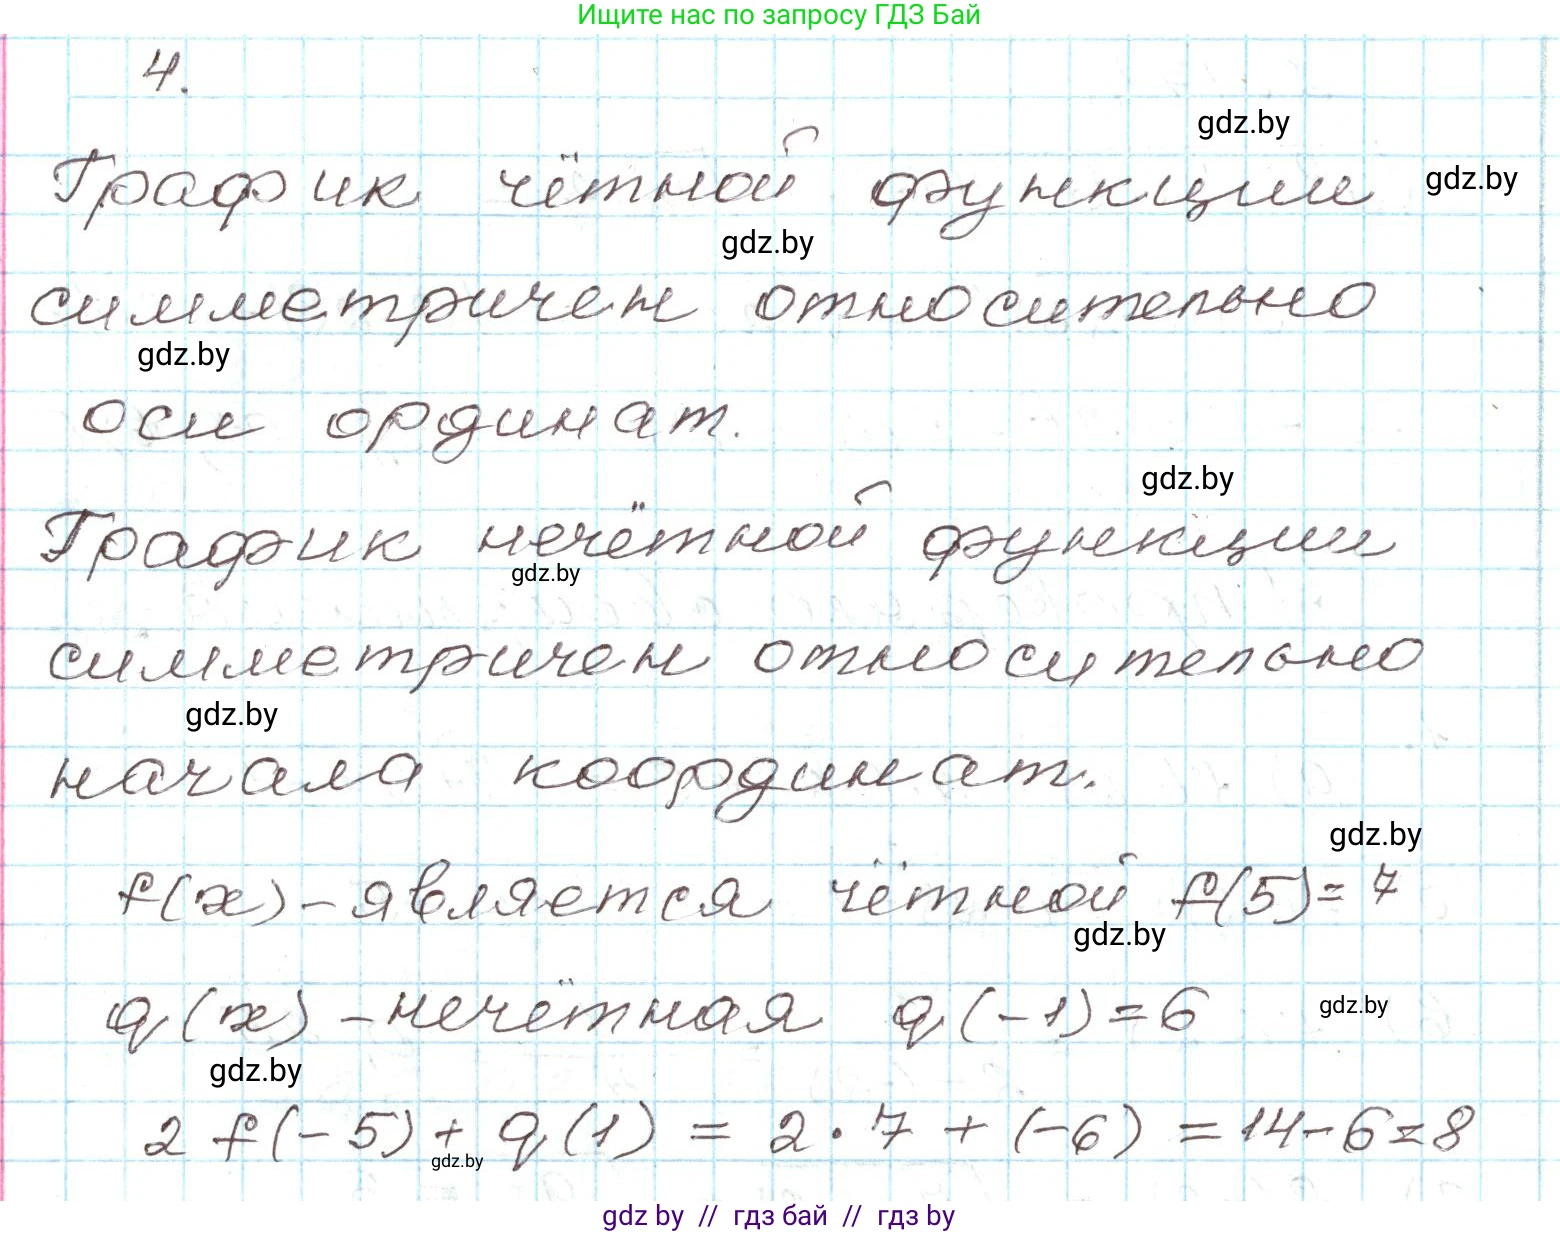 Ищите нас по запросу ГДЗ Бай
4.
gdz.by
График чётной функции
gdz.by
gdz.by
симметричен относительно
gdz.by
оси ординат.
gdz.by
График нечётной функции
gdz.by
симметричен относительно
gdz.by
начала координат.
gdz.by
f(x) - является чётной f(5) = 7
gdz.by
q(x) - нечётная q(-1) = 6
gdz.by
gdz.by
2 f(-5) + q(1) = 2 · 7 + (-6) = 14 - 6 = 8
gdz.by
gdz by // гдз бай // гдз by